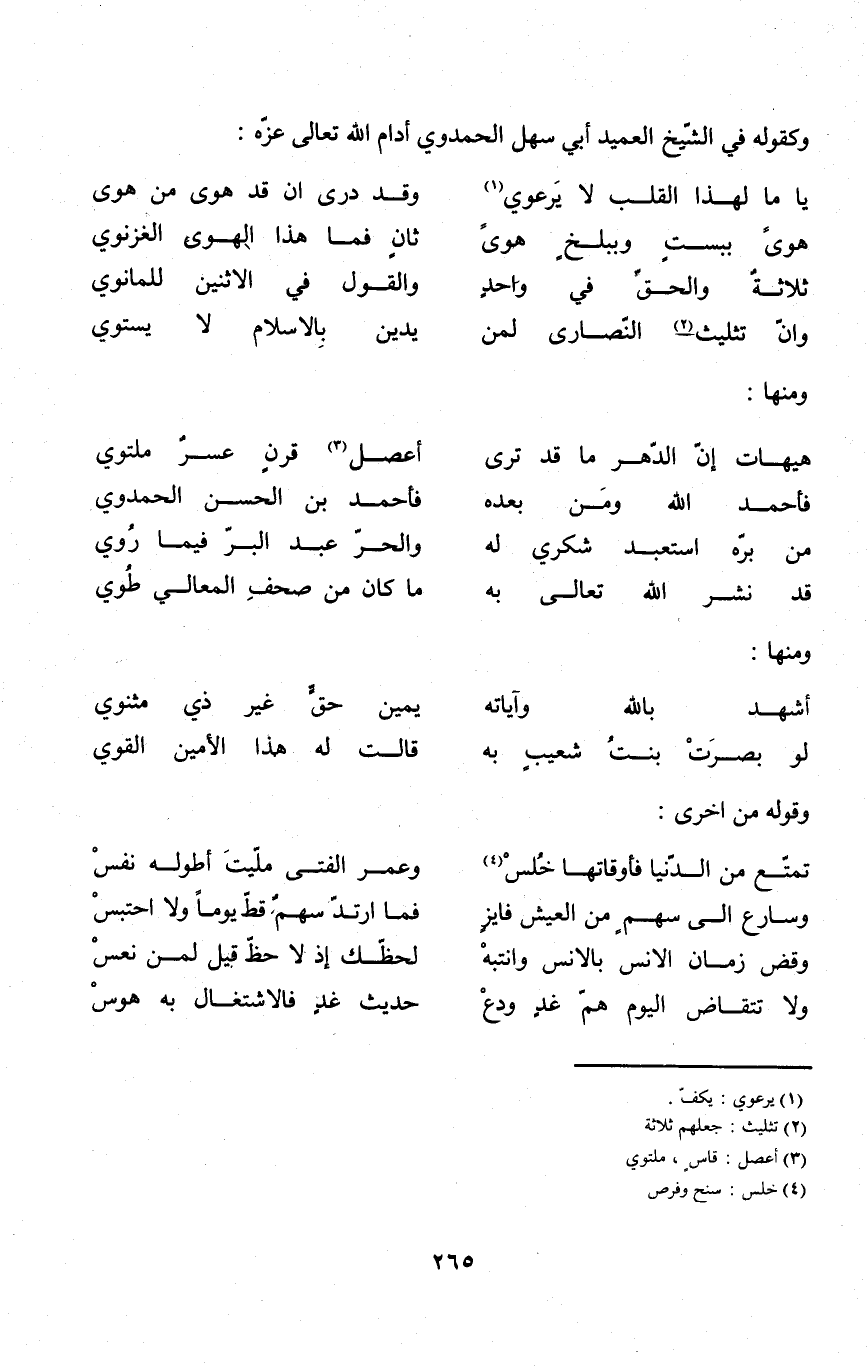 وكقوله في الشّيخ العميد أبي سهل الحمدوي أدام الله تعالى عزّه :
يا ما لهذا القلب لا يَرعوي(١) وقد درى ان قد هوى من هوى
هوىً ببستٍ وببلخٍ هوىً ثانٍ فما هذا الهوى الغزنوي
ثلاثةٌ والحقّ في واحدٍ والقول في الاثنين للمانوي
وانّ تثليث(٢) النّصارى لمن يدين بِالاسلام لا يستوي
ومنها :
هيهات إنّ الدّهر ما قد ترى أعصل(٣) قرنٍ عسرٌ ملتوي
فأحمد الله ومَن بعده فأحمد بن الحسن الحمدوي
من برّه استعبد شكري له والحرّ عبد البرّ فيما رُوي
قد نشر الله تعالى به ما كان من صحفِ المعالي طُوي
ومنها :
أشهد بالله وآياته يمين حقٍّ غير ذي مثنوي
لو بصرَتْ بنتُ شعيبٍ به قالت له هذا الأمين القوي
وقوله من اخرى :
تمتّع من الدّنيا فأوقاتها خُلسْ(٤) وعمر الفتى ملّيتَ أطوله نفسْ
وسارع الى سهمٍ من العيش فايزٍ فما ارتدّ سهمٌ قطّ يوماً ولا احتبسْ
وقض زمان الانس بالانس وانتبهْ لحظّك إذ لا حظّ قيل لمن نعسْ
ولا تتقاض اليوم همّ غدٍ ودعْ حديث غدٍ فالاشتغال به هوسْ
(١) يرعوي : يكفّ .
(٢) تثليث : جعلهم ثلاثة
(٣) أعصل : قاسٍ ، ملتوي
(٤) خلس : سنح وفرص
٢٦٥